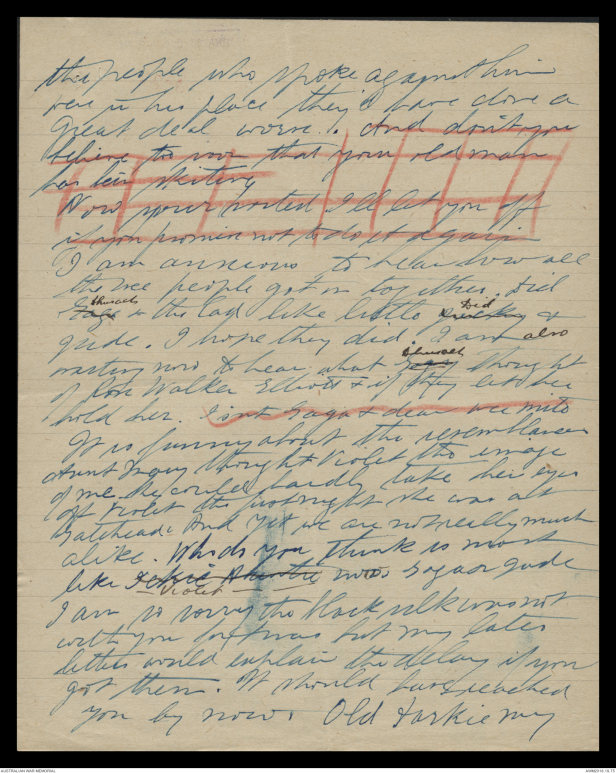 the people who spoke against him
were in his place they'd have done a
great deal worse.. And don't you
believe too soon that your old man
has been skiting
Now your wasted I'll let you off
if you promise not to do it again
I am anxious to hear how all
the wee people got on together. Did
thusach
& the lad like little Did &
Jude. I hope they did. I am also
wanting now to hear what thusach thought
of Rose Walker Elliott & if they let her
hold her. Isnt Gaga a dear wee mite
It is funny about the resemblances
Aunt thought Violet the image
of me he could hardly take her eyes
off Violet the first night she was at
Gatehead. And yet we are not really much
alike. Who do you think is most
like now Gaga or Jude
Violet
I am so sorry the black silk was not
with you for Xmas but my later
letters would explain the delay if you
got them. It should have reached
you by now. Old my
AUSTRALIAN WAR MEMORIAL